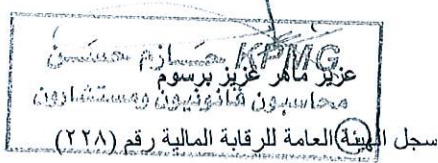 KPMG حازم حسن
عزيز ماهر عزيز برسوم
محاسبون قانونيون ومستشارون
سجل الهيئة العامة للرقابة المالية رقم (٢٢٨)